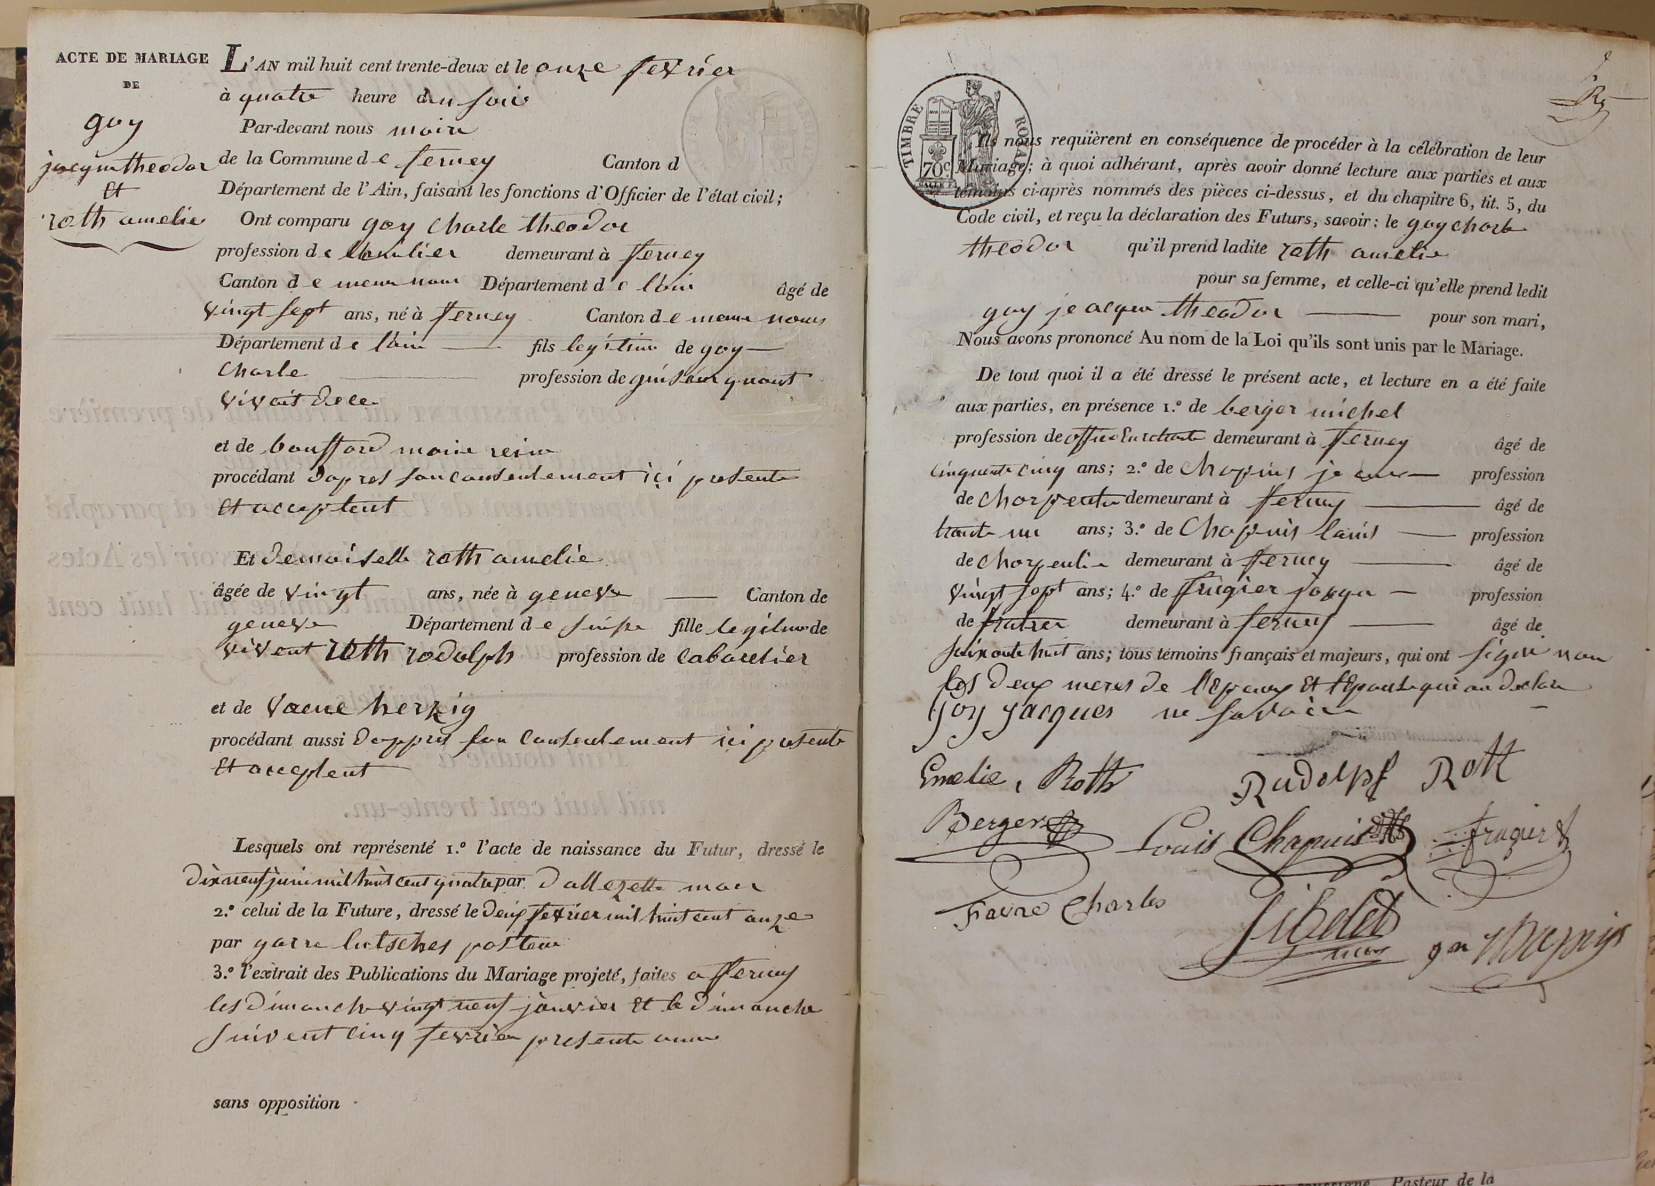 ACTE DE MARIAGE
DE
goy
jacques theodor
et
roth amelie
L'AN mil huit cent trente-deux et le onze fevrier
à quatre heure du soir
Par-devant nous maire
de la Commune de ferney Canton d
Département de l'Ain, faisant les fonctions d'Officier de l'état civil;
Ont comparu goy charle theodor
profession de demeurant à ferney
Canton de meme nom Département de l'ain âgé de
vingt sept ans, né à ferney Canton de meme nom
Département de l'ain fils legitime de goy
charle profession de
vivait
et de bouffard marie
procédant dapres son consentement içi presente
et acceptent
Et demoiselle roth amelie
âgée de vingt ans, née à geneve Canton de
geneve Département de suisse fille legitime de
vivent roth rodolph profession de cabaretier
et de herzig
procédant aussi dappres son consentement ici presente
et acceptent
Lesquels ont représenté 1.º l'acte de naissance du Futur, dressé le
dix neuf juin mil huit cent quatre par
2.º celui de la Future, dressé le deux fevrier mil huit cent onze
par
3.º l'extrait des Publications du Mariage projeté, faites a ferney
les dimanche vingt neuf janvier et le dimanche
suivent cinq fevrier presente anne
sans opposition
TIMBRE ROYAL
70c
Ils nous requièrent en conséquence de procéder à la célébration de leur
Mariage; à quoi adhérant, après avoir donné lecture aux parties et aux
témoins ci-après nommés des pièces ci-dessus, et du chapitre 6, tit. 5, du
Code civil, et reçu la déclaration des Futurs, savoir: le goy charle
theodor qu'il prend ladite roth amelie
pour sa femme, et celle-ci qu'elle prend ledit
goy jeacque theodor pour son mari,
Nous avons prononcé Au nom de la Loi qu'ils sont unis par le Mariage.
De tout quoi il a été dressé le présent acte, et lecture en a été faite
aux parties, en présence 1.º de berger michel
profession de demeurant à ferney âgé de
cinquante cinq ans; 2.º de chapuis profession
de charpentie demeurant à ferney âgé de
trante un ans; 3.º de chapuis louis profession
de charpentie demeurant à ferney âgé de
vingt sept ans; 4.º de frugier profession
de demeurant à ferney âgé de
soixante huit ans; tous témoins français et majeurs, qui ont signé non
les deux meres de l'epoux et l'epouse qui on declare
Goy Jacques ne savoir
Emelie, Roth Rudolph Roth
Berger Louis Chapuis frugier
Favre Charles